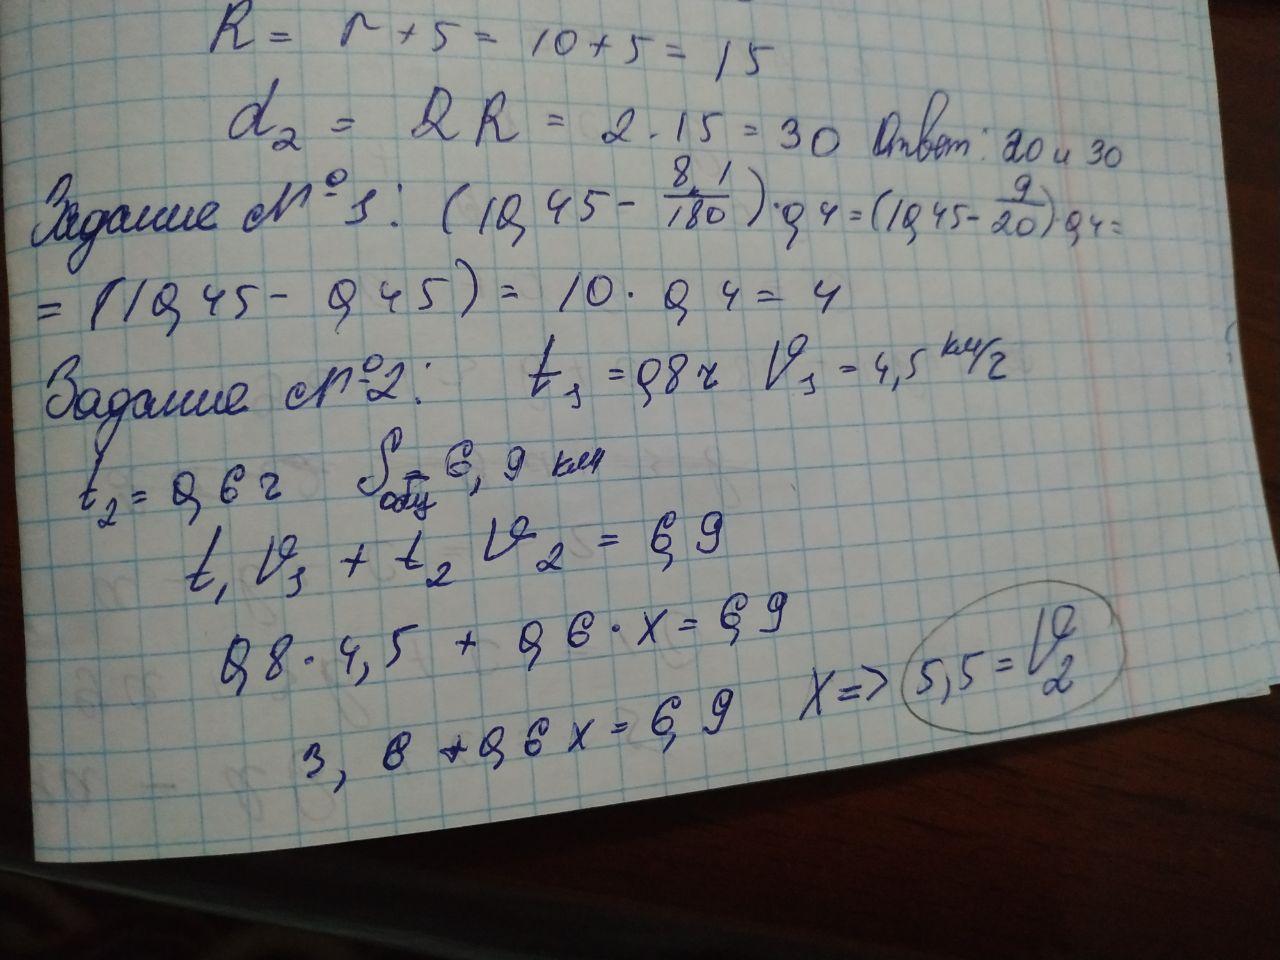 R = r + 5 = 10 + 5 = 15
d₂ = 2R = 2 · 15 = 30 Ответ: 20 и 30
Задание №1: (10,45 - 81/180) · 0,4 = (10,45 - 9/20) 0,4 =
= (10,45 - 0,45) = 10 · 0,4 = 4
Задание №2: t₁ = 0,8 ч V₁ = 4,5 км/ч
t₂ = 0,6 ч Sобщ = 6,9 км
t₁ V₁ + t₂ V₂ = 6,9
0,8 · 4,5 + 0,6 · x = 6,9
3,6 + 0,6 x = 6,9 x => 5,5 = V₂